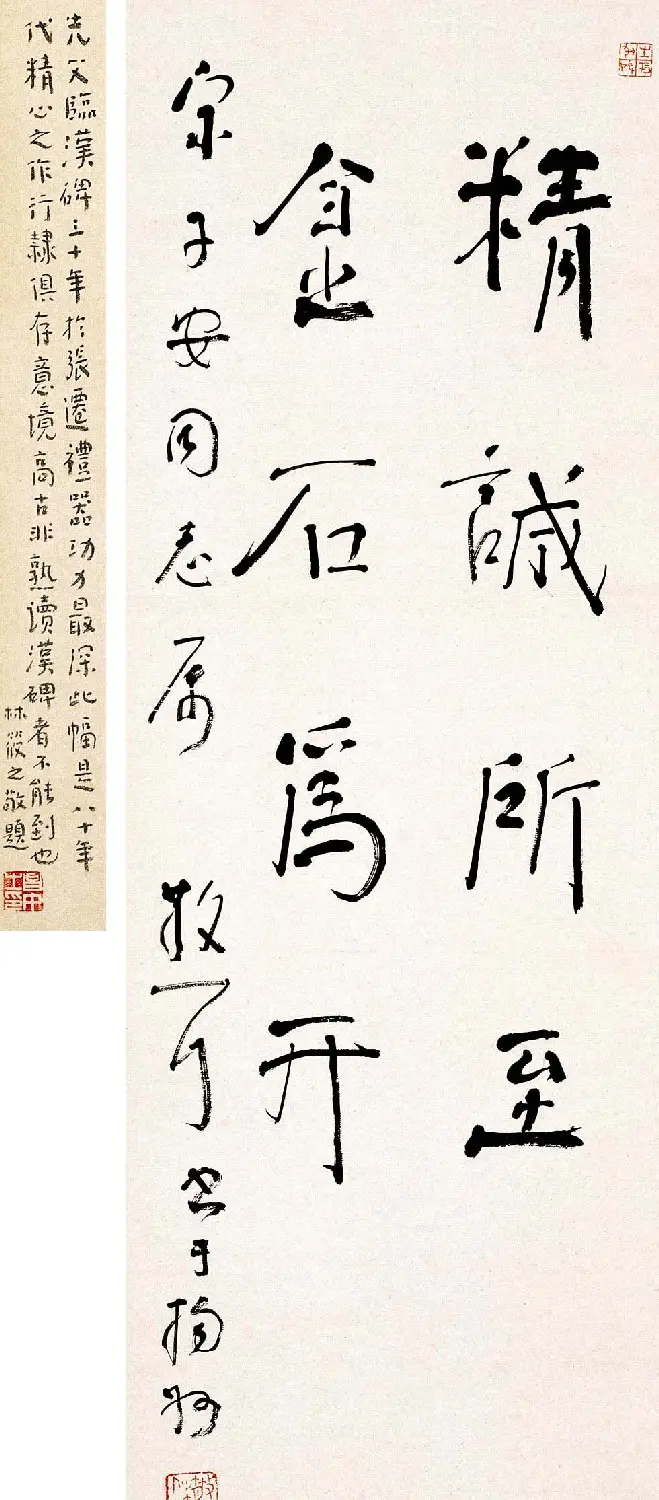 精誠所至
金石為開
宗子安同志属 散耳书于扬州
先父臨漢碑三十年於張遷禮器功力最深此幅是八十年
代精心之作行隸俱存意境高古非熟讀漢碑者不能到也
林筱之敬題